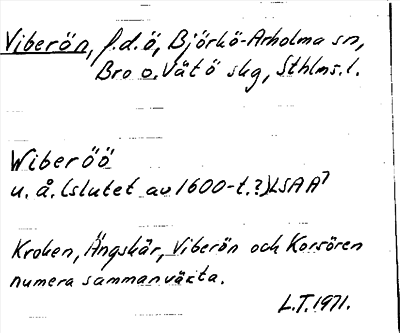 Viberön, f.d.ö, Björkö-Arholma sn,
Bro o. Vätö skg, Sthlms.l.
Wiberöö
u.å. (slutet av 1600-t.?) LSA A7
Kroken, Ängskär, Viberön och Korsören
numera sammanväxta.
L.T. 1971.